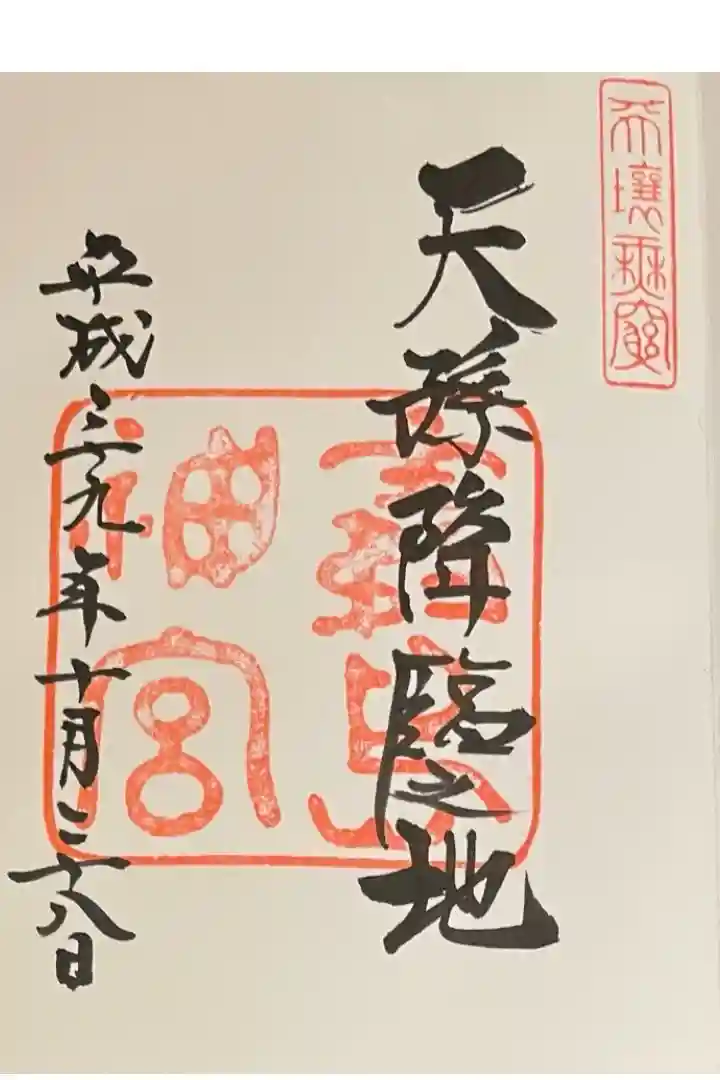 天壤無窮
天孫降臨之地
霧島神宮
平成二十九年十月二十八日